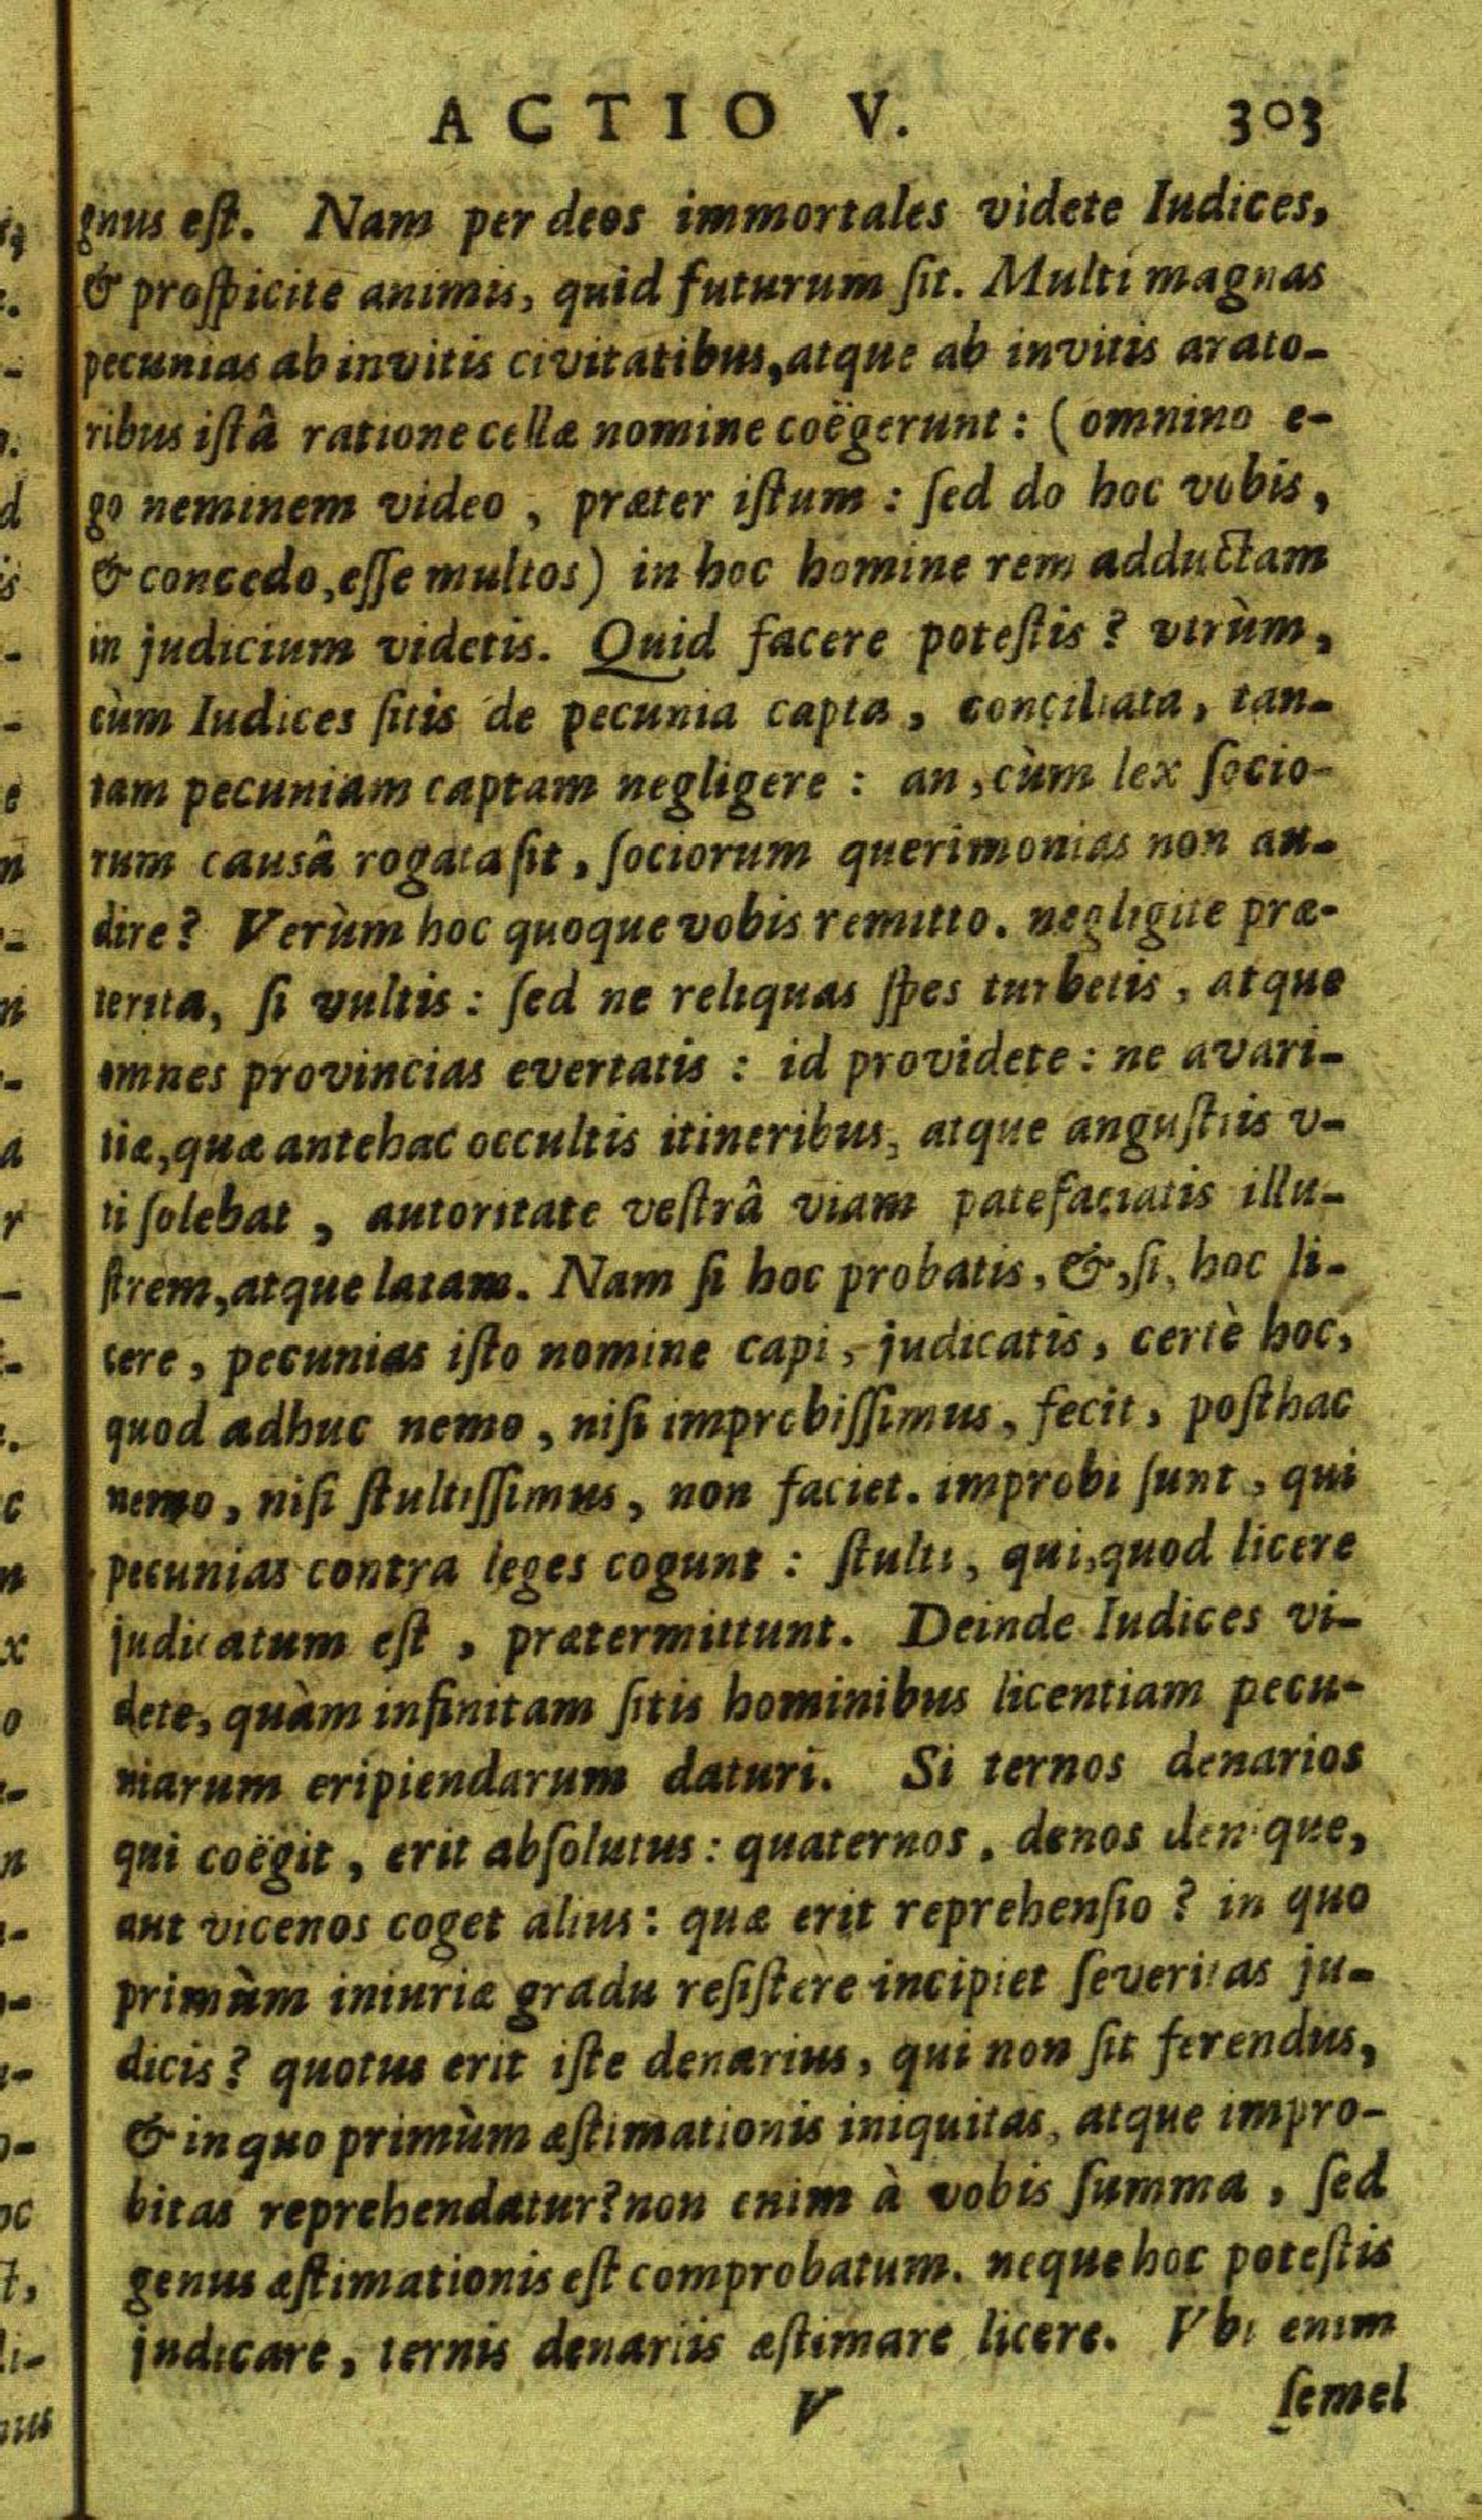 ACTIO V. 303
gnus est. Nam per deos immortales videte Iudices,
& prospicite animis, quid futurum sit. Multi magnas
pecunias ab invitis civitatibus, atque ab invitis arato-
ribus istâ ratione cellæ nomine coëgerunt: (omnino e-
go neminem video, præter istum: sed do hoc vobis,
& concedo, esse multos) in hoc homine rem adductam
in judicium videtis. Quid facere potestis? vtrùm,
cùm Iudices sitis de pecunia capta, conciliata, tan-
tam pecuniam captam negligere: an, cùm lex socio-
rum causâ rogata sit, sociorum querimonias non au-
dire? Verùm hoc quoque vobis remitto. negligite præ-
terita, si vultis: sed ne reliquas spes turbetis, atque
omnes provincias evertatis: id providete: ne avari-
tiæ, quæ antehac occultis itineribus, atque angustiis v-
ti solebat, autoritate vestrâ viam patefaciatis illu-
strem, atque latam. Nam si hoc probatis, &, si, hoc li-
cere, pecunias isto nomine capi, judicatis, certè hoc,
quod adhuc nemo, nisi improbissimus, fecit, posthac
nemo, nisi stultissimus, non faciet. improbi sunt, qui
pecunias contra leges cogunt: stulti, qui, quod licere
judicatum est, prætermittunt. Deinde Iudices vi-
dete, quàm infinitam sitis hominibus licentiam pecu-
niarum eripiendarum daturi. Si ternos denarios
qui coëgit, erit absolutus: quaternos, denos denique,
aut vicenos coget alius: quæ erit reprehensio? in quo
primùm iniuriæ gradu resistere incipiet severitas ju-
dicis? quotus erit iste denarius, qui non sit ferendus,
& in quo primùm æstimationis iniquitas, atque impro-
bitas reprehendatur? non enim à vobis summa, sed
genus æstimationis est comprobatum. neque hoc potestis
judicare, ternis denariis æstimare licere. Vbi enim
V semel